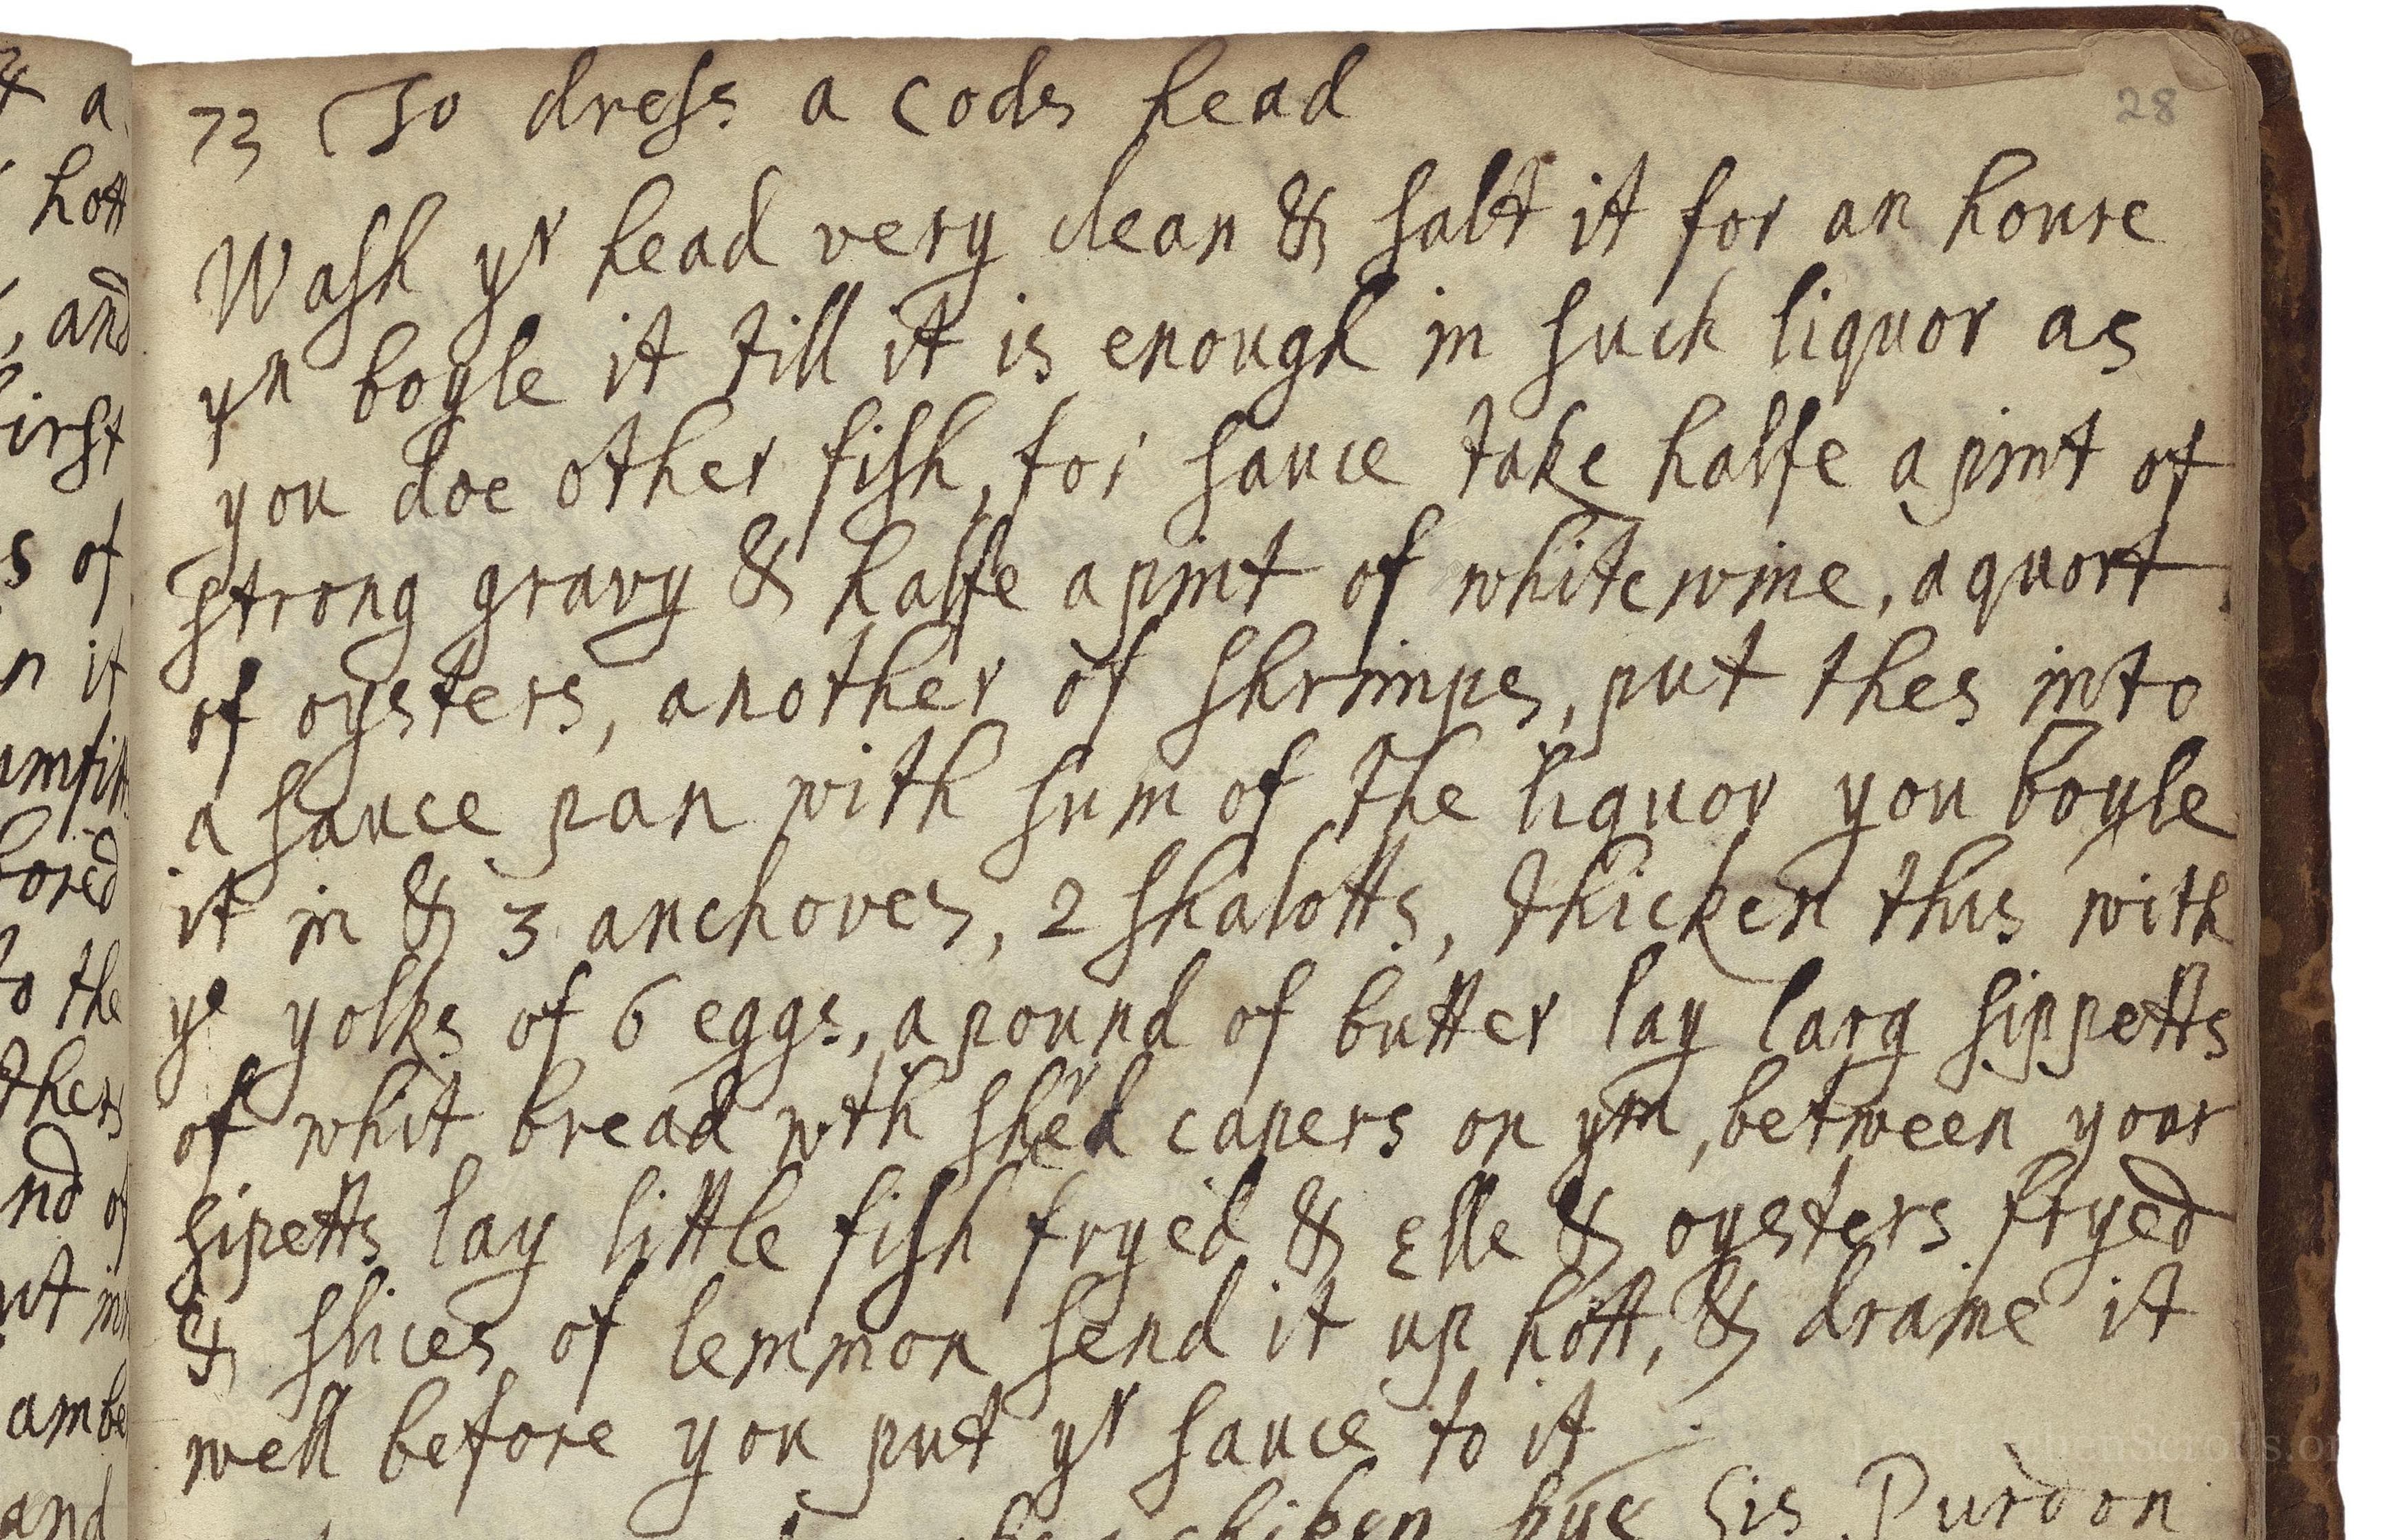 28
73 To dress a Cods head
Wash yr head very clean & salt it for an houre
yn boyle it till it is enough in such liquor as
you doe other fish, for sauce take halfe a pint of
strong gravy & halfe a pint of white wine, a quort
of oysters, another of shrimps, put thes into
a sauce pan with sum of the liquor you boyle
it in & 3 anchoves, 2 shalotts, thicken this with
ye yolks of 6 eggs, a pound of butter lay larg sippetts
of whit bread wth shred capers on ym, between your
sipetts lay little fish fryed & Elle & oysters fryed
& slices of lemmon send it up hott, & draine it
well before you put yr sauce to it
chiken pye Sis Purdon
a
hott
, and
first
s of
n it
to the
and